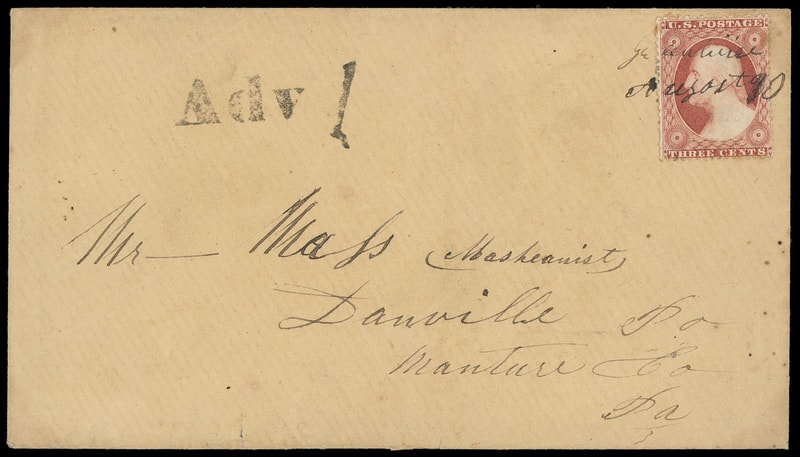 U.S. POSTAGE
August 10
THREE CENTS
Adv 1
Mr — Mass (Masheanist)
Danville Po
Manture Co
Pa